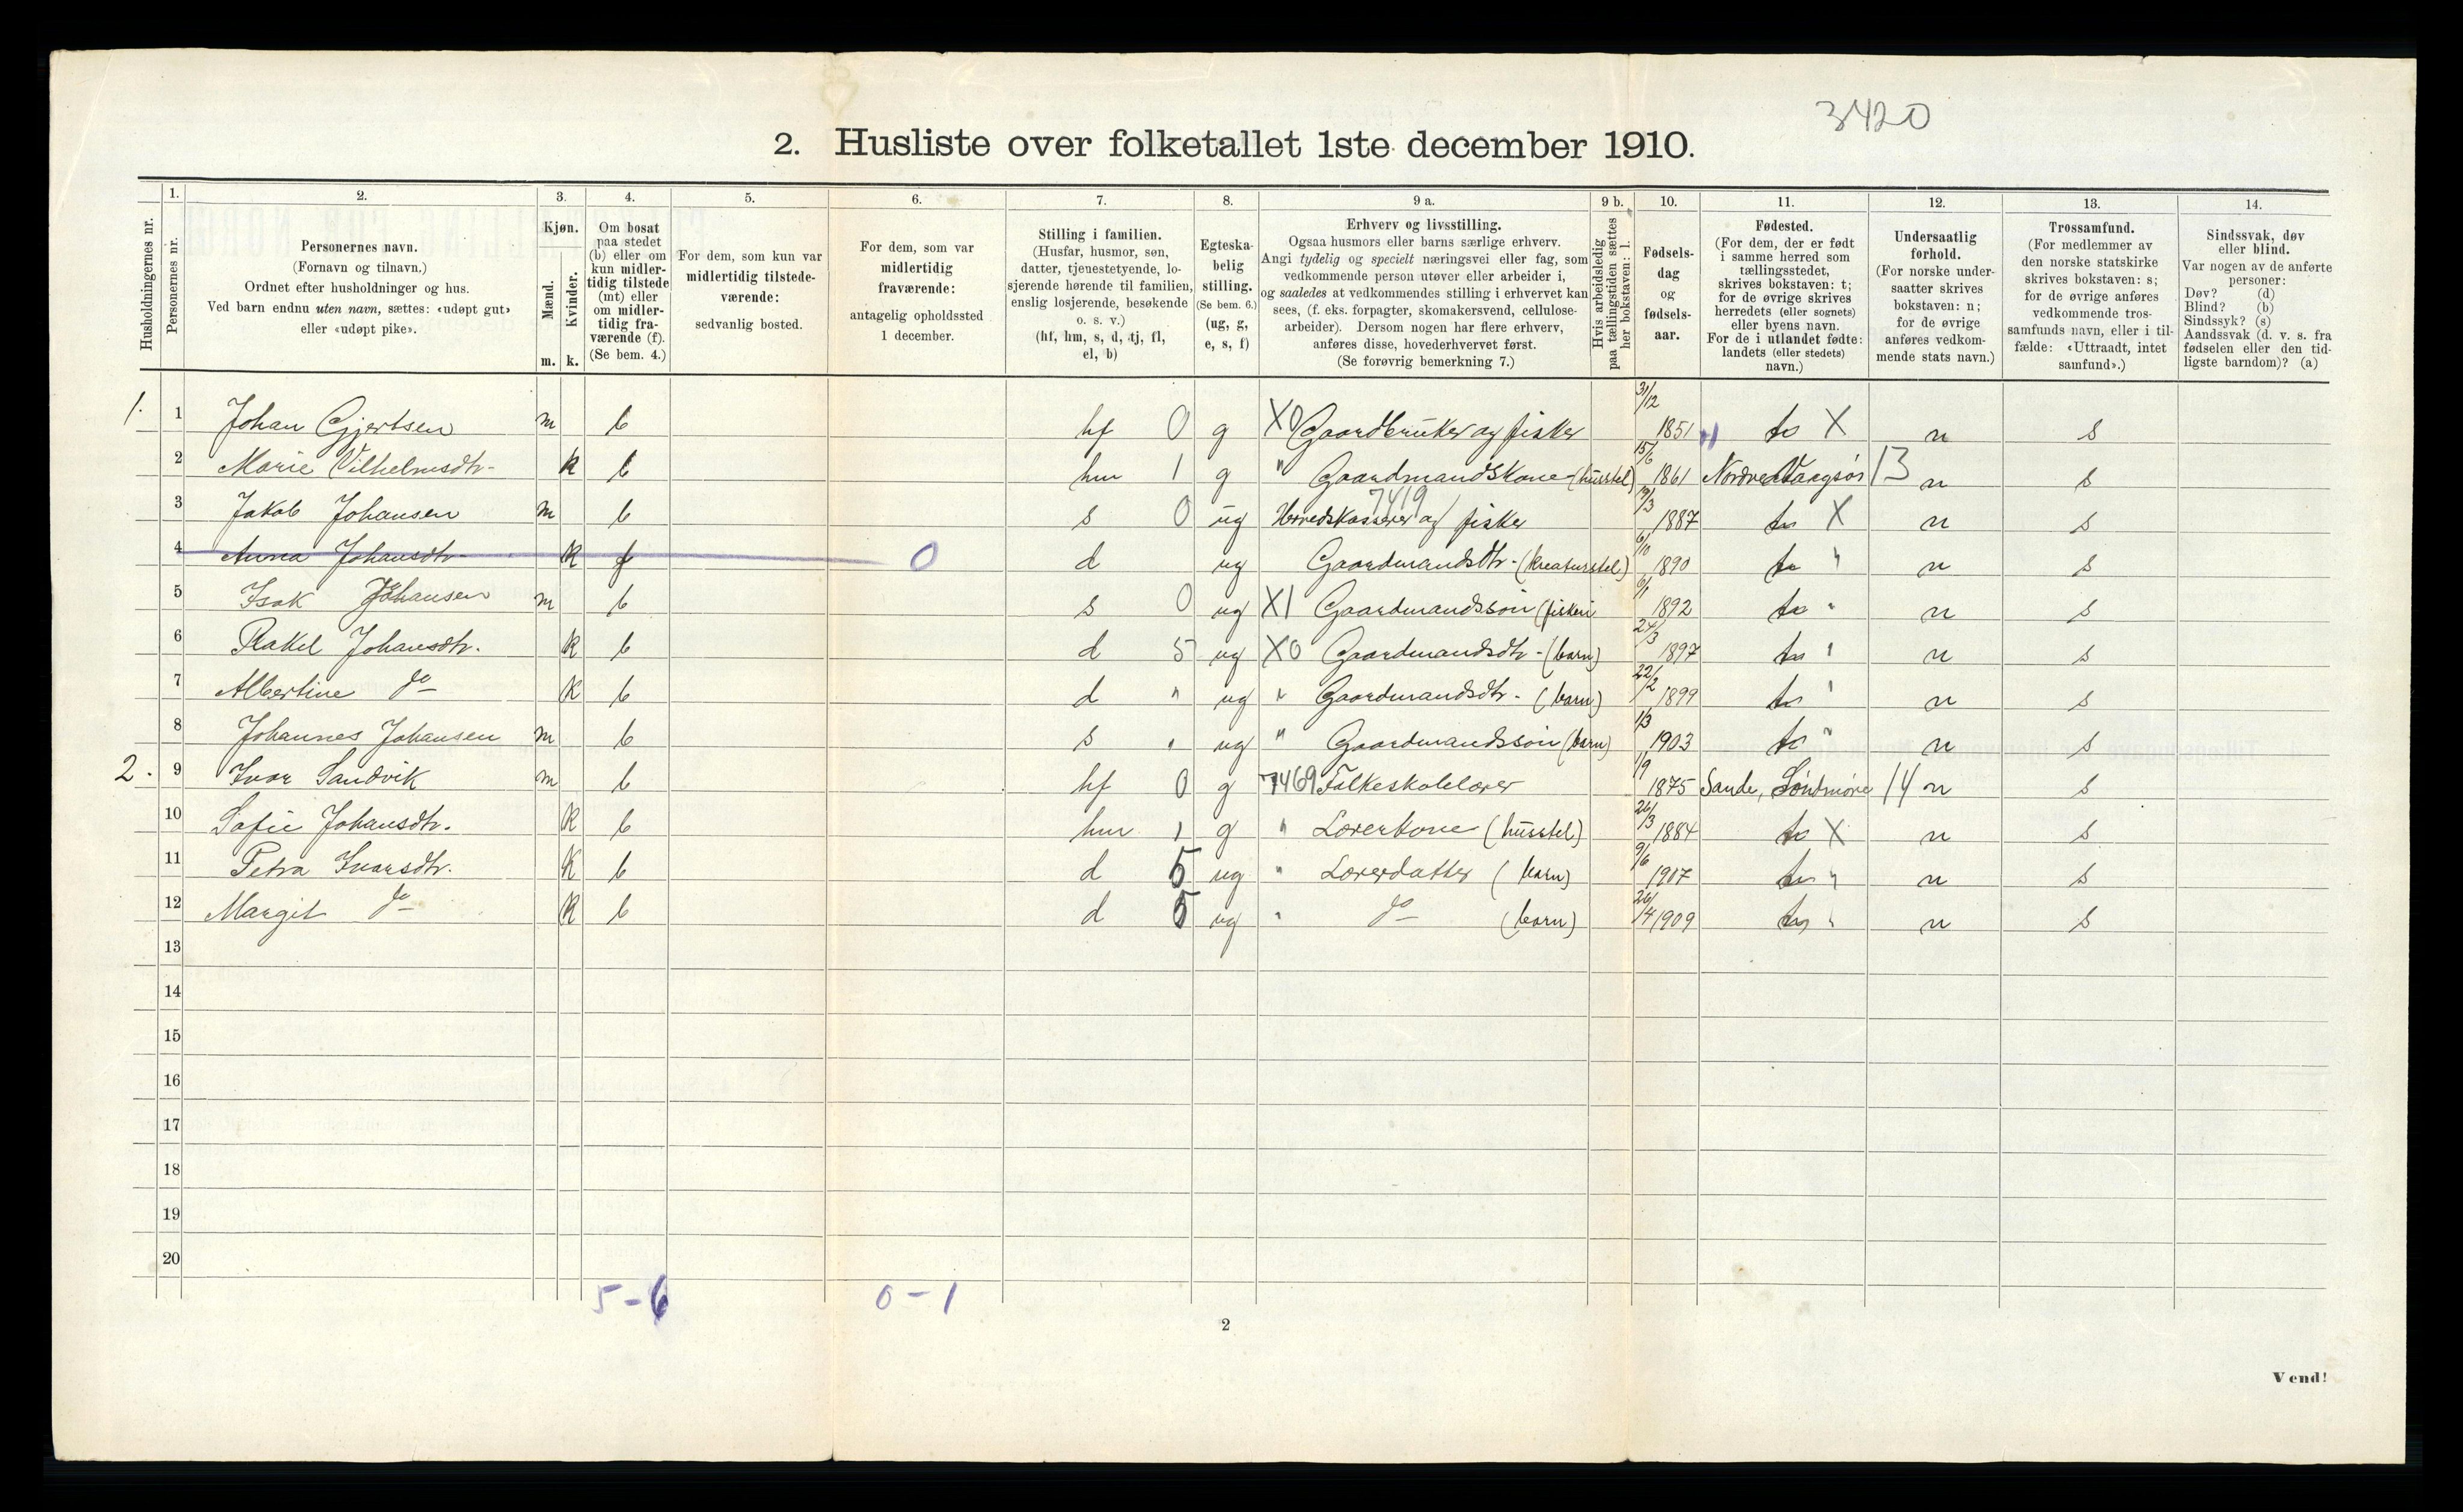 3420
2. Husliste over folketallet 1ste december 1910.
Husholdningernes nr.
1. Personernes nr.
2. Personernes navn.
(Fornavn og tilnavn.)
Ordnet efter husholdninger og hus.
Ved barn endnu uten navn, sættes: «udøpt gut»
eller «udøpt pike».
3. Kjøn.
Mænd. m.
Kvinder. k.
4. Om bosat
paa stedet
(b) eller om
kun midler-
tidig tilstede
(mt) eller
om midler-
tidig fra-
værende (f).
(Se bem. 4.)
5. For dem, som kun var
midlertidig tilstede-
værende:
sedvanlig bosted.
6. For dem, som var
midlertidig
fraværende:
antagelig opholdssted
1 december.
7. Stilling i familien.
(Husfar, husmor, søn,
datter, tjenestetyende, lo-
sjerende hørende til familien,
enslig losjerende, besøkende
o. s. v.)
(hf, hm, s, d, tj, fl,
el, b)
8. Egteska-
belig
stilling.
(Se bem. 6.)
(ug, g,
e, s, f)
9 a. Erhverv og livsstilling.
Ogsaa husmors eller barns særlige erhverv.
Angi tydelig og specielt næringsvei eller fag, som
vedkommende person utøver eller arbeider i,
og saaledes at vedkommendes stilling i erhvervet kan
sees, (f. eks. forpagter, skomakersvend, cellulose-
arbeider). Dersom nogen har flere erhverv,
anføres disse, hovederhvervet først.
(Se forøvrig bemerkning 7.)
9 b. Hvis arbeidsledig
paa tællingstiden sættes
her bokstaven: l.
10. Fødsels-
dag
og
fødsels-
aar.
11. Fødested.
(For dem, der er født
i samme herred som
tællingsstedet,
skrives bokstaven: t;
for de øvrige skrives
herredets (eller sognets)
eller byens navn.
For de i utlandet fødte:
landets (eller stedets)
navn.)
12. Undersaatlig
forhold.
(For norske under-
saatter skrives
bokstaven: n;
for de øvrige
anføres vedkom-
mende stats navn.)
13. Trossamfund.
(For medlemmer av
den norske statskirke
skrives bokstaven: s;
for de øvrige anføres
vedkommende tros-
samfunds navn, eller i til-
fælde: «Uttraadt, intet
samfund».)
14. Sindssvak, døv
eller blind.
Var nogen av de anførte
personer:
Døv? (d)
Blind? (b)
Sindssyk? (s)
Aandssvak (d. v. s. fra
fødselen eller den tid-
ligste barndom)? (a)
1. 1 Johan Gjertsen m b hf 0 g X0 Gaardbruker og fisker 31/12 1851 t X n s
2 Marie Vilhelmsdtr. k b hm 1 g " Gaardmandskone (husstel) 15/6 1861 Nordre Vaagsøi 13 n s
3 Jakob Johansen m b s 0 ug Herredskasserer og fisker 7419 19/3 1887 t X n s
4 Anna Johansdtr. k f 0 d ug Gaardmandsdtr. (kreaturstel) 6/10 1890 t " n s
5 Isak Johansen m b s 0 ug X1 Gaardmandssøn (fiskeri 6/1 1892 t " n s
6 Rakel Johansdtr. k b d 5 ug X0 Gaardmandsdtr. (barn) 24/3 1897 t " n s
7 Albertine do k b d " ug " Gaardmandsdtr. (barn) 22/2 1899 t " n s
8 Johannes Johansen m b s " ug " Gaardmandssøn (barn) 1/3 1903 t " n s
2. 9 Ivar Sandvik m b hf 0 g 7469 Folkeskolelærer 1/9 1875 Sande, Søndmøre 14 n s
10 Sofie Johansdtr. k b hm 1 g " Lærerkone (husstel) 26/3 1884 t X n s
11 Petra Ivarsdtr. k b d 5 ug " Lærerdatter (barn) 9/6 1907 t " n s
12 Margit do k b d 5 ug " do (barn) 26/4 1909 t " n s
13
14
15
16
17
18
19
20
5-6 0-1
2
Vend!